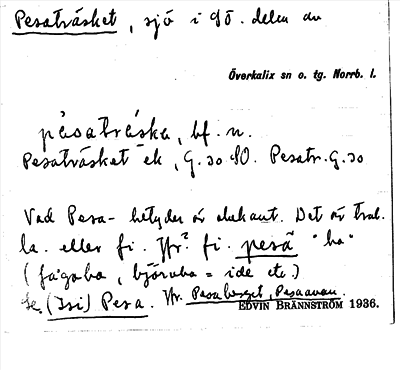 Pesaträsket, sjö i NÖ. delen av
Överkalix sn o. tg. Norrb. l.
pèsatráska, bf. n.
Pesaträsket ek, G. 30 NO. Pesatr. G. 30
Vad Pesa- betyder är obekant. Det är trol.
la. eller fi. Jfr? fi. pesä "bo"
(fågelbo, björnbo = ide etc.)
Se (Isi) Pesa. Jfr. Pesaberget, Pesaavan.
EDVIN BRÄNNSTRÖM 1936.